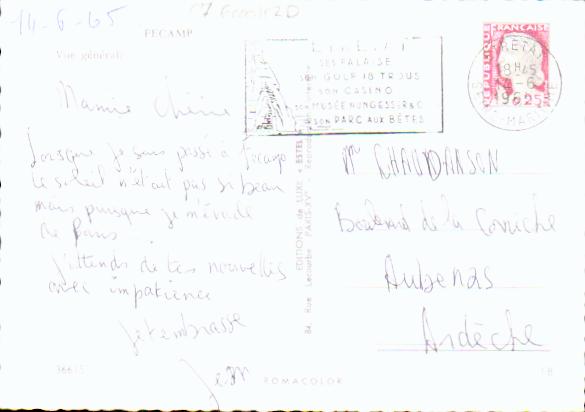 14-6-65
FECAMP
Vue générale
ETRETAT
SES FALAISE
SON GOLF 18 TROUS
SON CASINO
SON MUSÉE NUNGESSER & C
SON PARC AUX BÊTES
REPUBLIQUE FRANÇAISE
0,25
ETRETAT
18H45
-6
196
Mamie Chérie
Lorsque je suis passé à Fécamp
le soleil n'était pas si beau
mais puisque je m'évade
de Paris
J'attends de tes nouvelles
avec impatience
Je t'embrasse
EDITIONS de LUXE « ESTEL »
84, Rue Lecourbe PARIS-XV
Mme CHAUDARSON
Boulevard de la Corniche
Aubenas
Ardèche
36615
ROMACOLOR